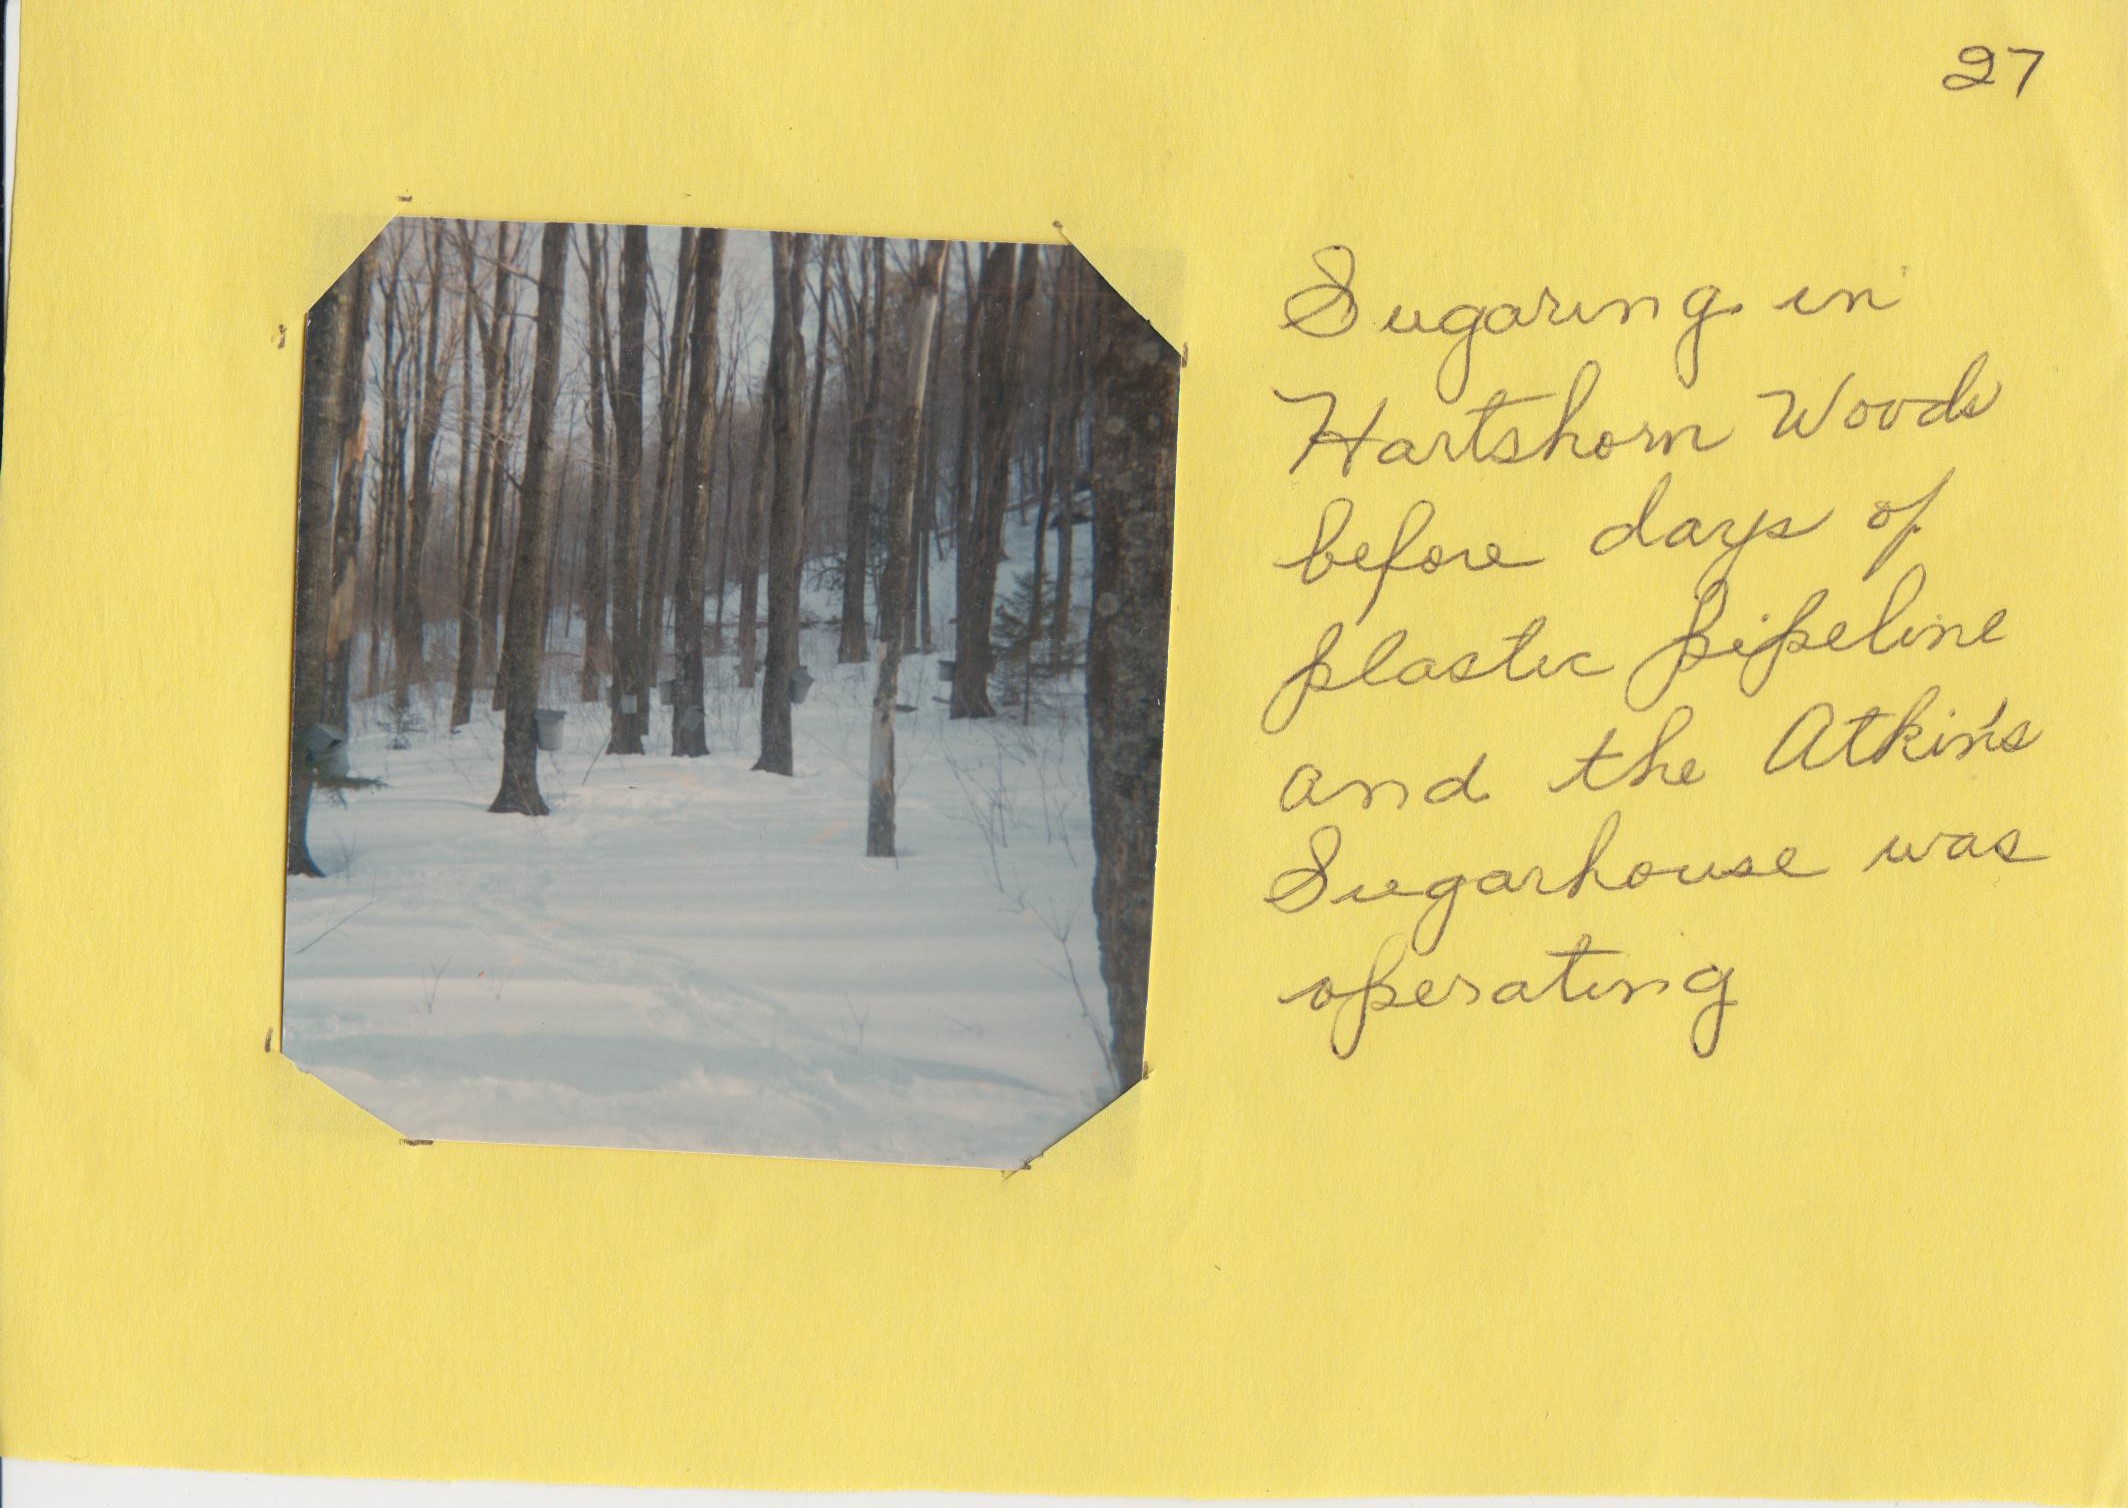 27
Sugaring in
Hartshorn Woods
before days of
plastic pipeline
and the Atkin's
Sugarhouse was
operating